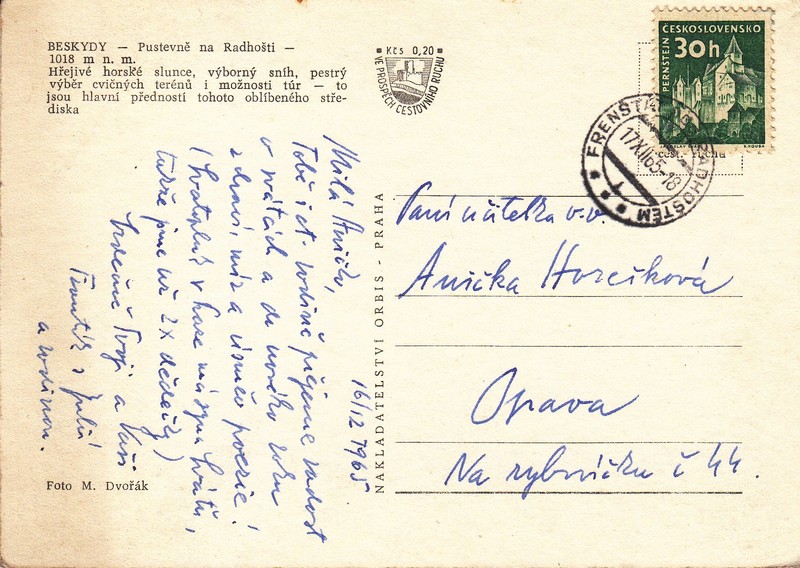 BESKYDY — Pustevně na Radhošti —
1018 m n. m.
Hřejivé horské slunce, výborný sníh, pestrý
výběr cvičných terénů i možnosti túr — to
jsou hlavní předností tohoto oblíbeného stře-
diska
Kčs 0,20
VE PROSPĚCH CESTOVNÍHO RUCHU
ČESKOSLOVENSKO
PERNŠTEJN
30h
FRENŠTÁT RADHOŠTĚM
17.XII.65-18
1
cest. ruchu
16/12 1965
Milá Aničko,
Tobě i ct. rodině přejeme radost
v svátcích a do nového roku
zdraví mír a úsměv poezie!
(Svatopluk v Praze má syna
takže jsme už 2x dědečky)
Srdečně Tvoji a Vaši
František s Julií
a rodinou.
NAKLADATELSTVÍ ORBIS - PRAHA
Paní učitelka v.v.
Anička Horečková
Opava
Na rybníčku č 44.
Foto M. Dvořák